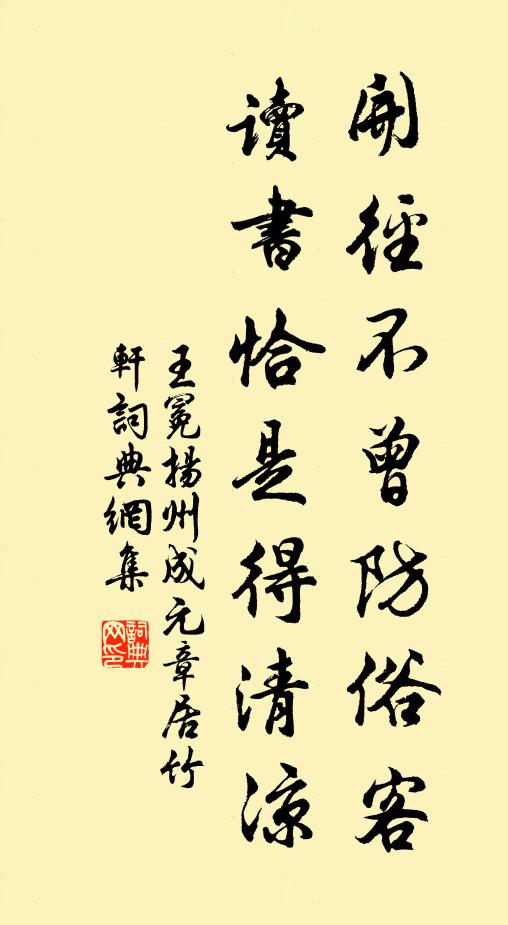 開徑不曾防俗客
讀書恰是得清涼
王冕揚州成元章居竹
軒詞典網集
詞典
网印